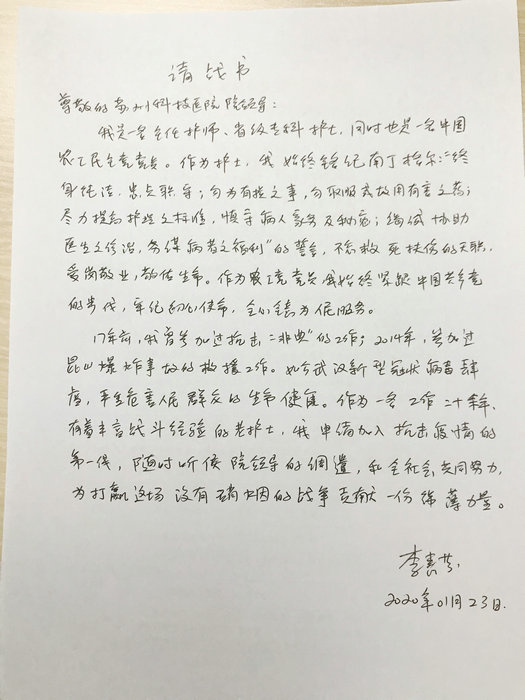 请战书
尊敬的苏州科技医院院领导:
我是一名主任护师、省级专科护士,同时也是一名中国
农工民主党党员。作为护士,我始终铭记南丁格尔:“终
身纯洁,忠贞职守;勿为有损之事,勿取服或故用有害之药;
尽力提高护理之标准,慎守病人家务及秘密;竭诚协助
医生之诊治,务谋病者之福利”的誓言,不忘救死扶伤的天职,
爱岗敬业,敬佑生命。作为农工党党员,我始终紧跟中国共产党
的步伐,牢记初心使命,全心全意为人民服务。
17年前,我曾参加过抗击“非典”的工作;2014年,参加过
昆山爆炸事故的救援工作。如今武汉新型冠状病毒肆
虐,严重危害人民群众的生命健康。作为一名工作二十余年、
有着丰富战斗经验的老护士,我申请加入抗击疫情的
第一线,随时听候院领导的调遣,和全社会共同努力,
为打赢这场没有硝烟的战争贡献一份绵薄力量。
2020年01月23日.